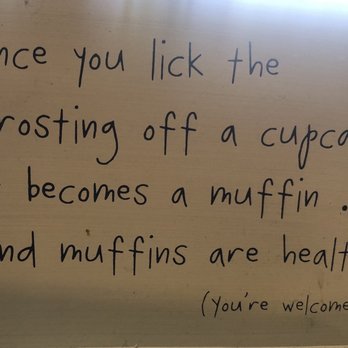 nce you lick the
rosting off a cupca
becomes a muffin .
nd muffins are healt
(you're welcome